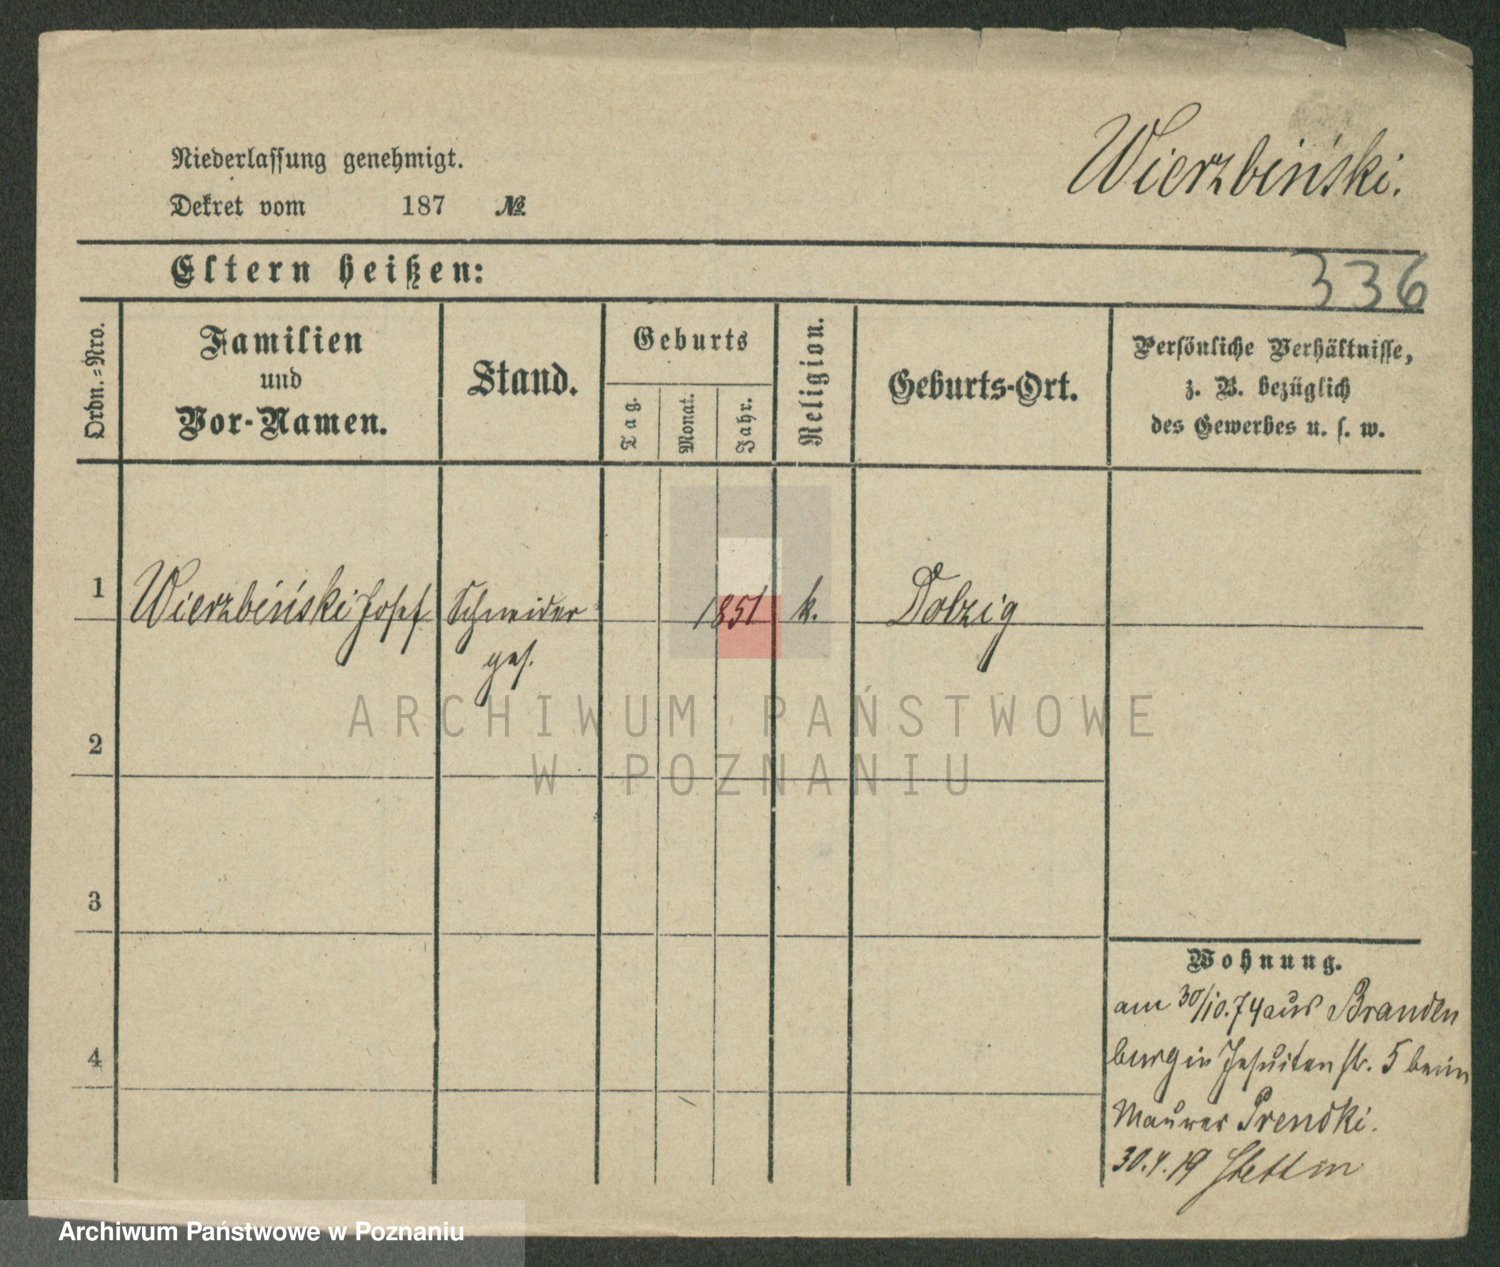 Wierzbiński.
Niederlassung genehmigt.
Dekret vom 187 №
Eltern heißen:
336
Ordn.-Nro.
Familien
und
Vor-Namen.
Stand.
Geburts
Tag.
Monat.
Jahr.
Religion.
Geburts-Ort.
Persönliche Verhältnisse,
z. B. bezüglich
des Gewerbes u. s. w.
1 Wierzbiński Josef Schneider 1851 k. Dolzig
ges.
ARCHIWUM PAŃSTWOWE
W POZNANIU
2
3
4
Wohnung.
am 30/10.74 aus Branden
burg in Jesuiten str. 5 beim
Maurer Prendki.
30.4.19 Stettin
Archiwum Państwowe w Poznaniu